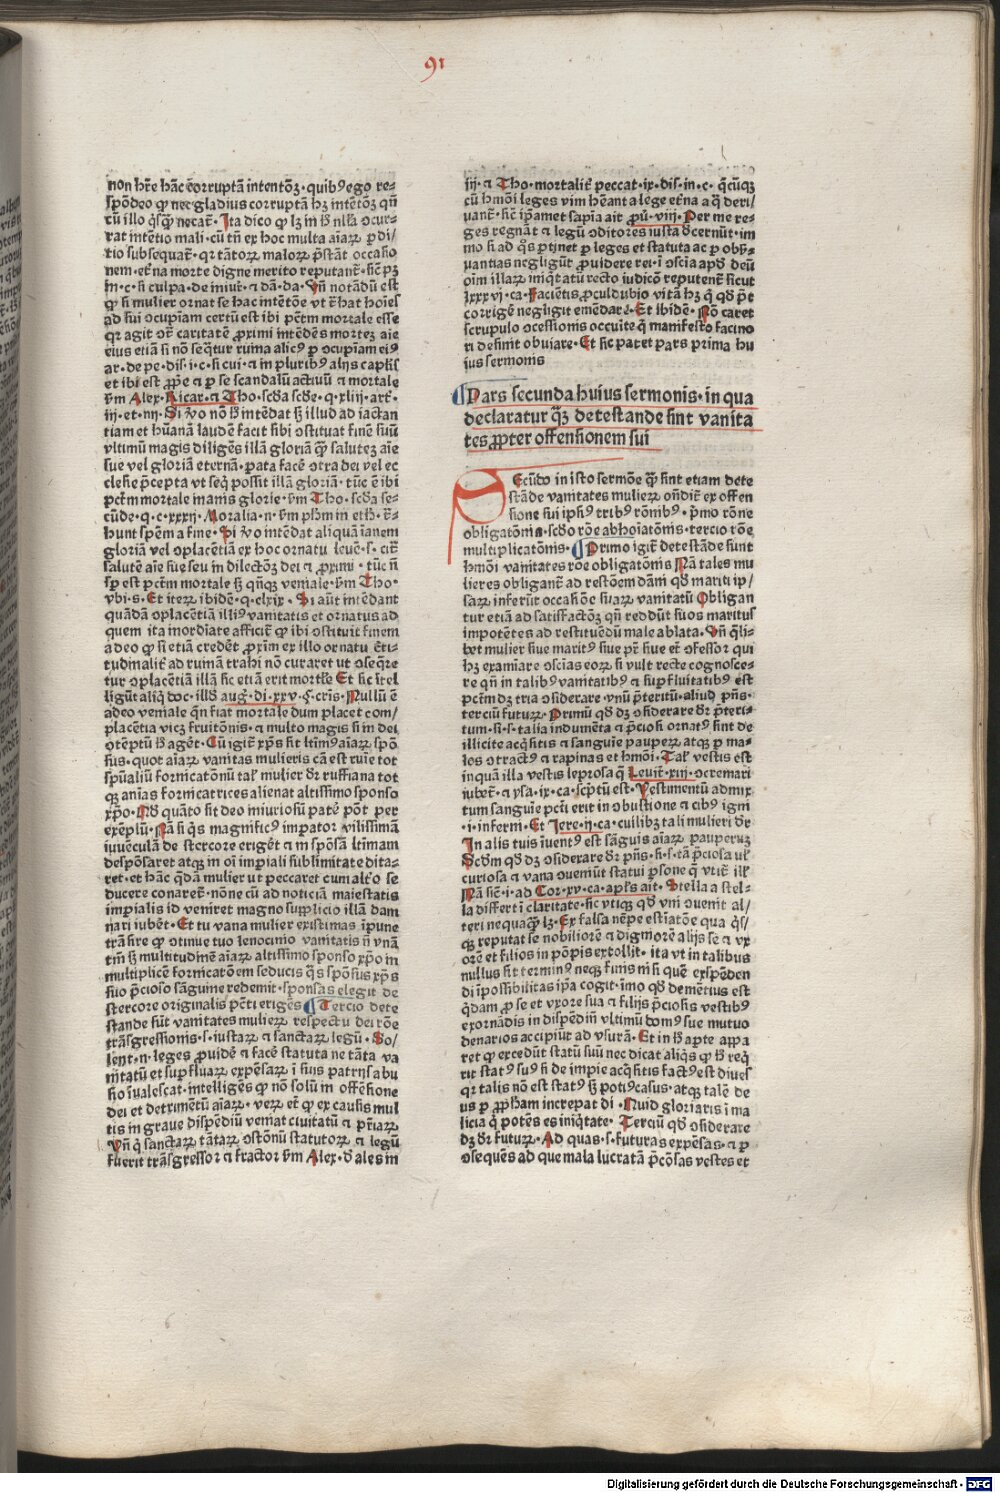 91
non hr̄e hāc cōrruptā intentōꝫ · quibꝰ ego re⸗
spōdeo ꝙ nec gladius corruptā hꝫ intētōꝫ qn̄
cū illo q̇sꝙ̄ necat̄ · Ita dico ꝙ lꝫ in
rat intētio mali · cū tn̄ ex hoc multa aīaꝝ ꝑdi/
tio subsequat̄ · qꝛ tātoꝝ maloꝝ p̄stāt occasio
nem · et̄na morte digne merito reputant̄ · sic̄ pꝫ
in · c · si culpa · de iniur̄ · ⁊ dā · da · Vn̄ notādū est
ꝙ si mulier ornat se hac intētōe vt hoīes
ad sui ↄcupiam certū est ibi pctm̄ mortale esse
qꝛ agit caritatē ꝓximi intēdēs morteꝫ aīe
eius etiā si nō seq̄tur ruina alicꝰ ꝑ ↄcupiam eiꝰ
ar · de pe · dis · i · c · si cui · ⁊ in pluribꝰ alijs caplīs
et ibi est ꝓpe ⁊ ꝑ se scandalū actiuū ⁊ mortale
ẜm Alex · Ricar · ⁊ Tho · scd̄a scd̄e · q · xliij · art̄ ·
iij · et · iiij · Si ꝟo nō intēdat ꝫ illud ad iactan
tiam et hūanā laudē facit sibi ↄstituat finē suū
vltimū magis diligēs illā gloriā ꝙ̄ saluteꝫ aīe
sue vel gloriā eternā · parata facē ↄtra dei vel ec
clesie p̄cepta vt seq̄ possit illā gloriā · tūc ē ibi
pctm̄ mortale inanis glorie · ẜm Tho · scd̄a se⸗
cūde · q · c · xxxij · Moralia · n · ẜm ph̄m in eth ·
hunt spēm a fine · Si ꝟo intēdat aliquā īanem
gloriā vel ↄplacētiā ex hoc ornatu leuē · s ·
salutē aīe sue seu in dilectōeꝫ dei ⁊ ꝓximi · tūc n̄
sp̄ est pctm̄ mortale ꝫ qn̄qꝫ veniale · ẜm Tho ·
vbi · s · Et iteꝝ ibidē · q · clxix · Si aūt intēdant
quādā ↄplacētiā illiꝰ vanitatis et ornatus ad
quem ita inordīate afficit̄ ꝙ ibi ↄstituit finem
adeo ꝙ si etiā credēt ꝓxim ex illo ornatu
tudinalit̄ ad ruinā trahi nō curaret ut ↄseq̄re
tur ↄplacētiā illā sic etiā erit mortle Et sic
ligūt aliq̇ doc · illd̄ auḡ · di · xxv · § · cris · Nullū ē
adeo veniale qn̄ fiat mortale dum placet com/
placētia vicꝫ fruitōnis · ⁊ multo magis si in dei
ↄtēptū agēt · Cū igit̄ xp̄s sit aīaꝝ spō
sus · quot aīaꝝ vanitas mulieris cā est ruīe tot
spūaliū fornicatōnū mulier dr̄ ruffiana tot
qꝫ anīas fornicatrices alienat altissimo sponso
xp̄o · Nō quāto sit deo iniuriosū patē pōt per
exēplū · Nā si q̇s magnificꝰ imꝑator vilissimā
iuuēculā de stercore erigēt ⁊ in spōsā
despōsaret atqꝫ in oī imꝑiali sublimitate dita⸗
ret · et hāc q̄dā mulier ut peccaret cum alt̄o se
ducere conaret̄ · nōne cū ad noticiā maiestatis
imꝑialis id veniret magno supplicio illā dam
nari iubēt · Et tu vana mulier existimas īpune
trāsire ꝙ ↄtinue tuo lenocinio vanitatis n̄ vnā
tm̄ ꝫ multitudinē aīaꝝ altissimo sponso xp̄o in
multiplicē fornicatōem seducis q̄s spōsus xp̄s
suo p̄cioso sāguine redemit · sponsas elegit de
stercore originalis pct̄i erigēs ¶ Tercio dete
stande sūt vanitates mulieꝝ respectu dei rōe
trāsgressionis · s · iustaꝝ ⁊ sanctaꝝ legū · So/
lent · n · leges ꝓuidē ⁊ facē statuta ne tāta va
nitatū et suꝑfluaꝝ expēsaꝝ ī suis patrijs abu
sio īualescat · intelligēs ꝙ nō solū in offēsione
dei et detrimētū aīaꝝ · veꝝ et̄ ꝙ ex causis mul
tis in graue dispēdiū veniat ciuitatū ⁊ pr̄iaꝝ
Vn̄ q̇ sanctaꝝ tātaꝝ ↄstōnū statutoꝝ ⁊ legū
fuerit trāsgressor ⁊ fractor ẜm Alex · d̄ ales in
iij · ⁊ Tho · mortalit̄ peccat · ix · dis · in · c · q̄cūqꝫ
cū hmōi leges vim hēant a lege et̄na a q̄ deri/
uant̄ · sic̄ ip̄amet sapīa ait ꝓū · viij · Per me re⸗
ges regnāt ⁊ legū ↄditores iusta d̄cernūt · im
mo si ad q̇s ꝑtinet ꝑ leges et statuta ac ꝑ obẜ⸗
uantias negligūt ꝓuidere rei · ī ↄscia apd̄ deū
oīm illaꝝ iniq̇tatū recto iudicō reputent̄ sicut
lxxxvi · ca · Facientis ꝓculdubio vitā hꝫ q̇ qd̄ p̄t
corrigē negligit emēdare · Et ibidē · Nō caret
scrupulo ↄcessionis occulte q̇ manifesto facino
ri desinit obuiare · Et sic patet pars prima hu
ius sermonis
¶ Pars secunda huius sermonis · in qua
declaratur q̄ꝫ detestande sint vanita
tes ꝓpter offensionem sui
Secūdo in isto sermōe ꝙ̄ sint etiam dete
stāde vanitates mulieꝝ oñdit̄ ex offen
sione sui ipsiꝰ tribꝰ rōnibꝰ · p̄mo rōne
obligatōnis · scd̄o rōe abhoīatōnis · tercio rōe
multiplicatōnis · ¶ Primo igit̄ detestāde sunt
hmōi vanitates rōe obligatōnis Nā tales mu
lieres obligant̄ ad restōem dāni qd̄ mariti ip/
saꝝ inferūt occasiōe suaꝝ vanitatū Obligan
tur etiā ad satisfactōꝫ qn̄ reddūt suos maritos
impotētes ad restituēdū male ablata · Vn̄ q̄li⸗
bet mulier siue maritꝰ siue pr̄ siue et̄ ↄfessor qui
hꝫ examīare ↄscias eoꝝ si vult recte cognosce⸗
re qn̄ in talibꝰ vanitatibꝰ ⁊ suꝑfluitatibꝰ est
pctm̄ dꝫ tria ↄsiderare · vnū p̄teritū · aliud p̄ns ·
terciū futuꝝ · Primū qd̄ dꝫ ↄsiderare dr̄ p̄teri⸗
tum · si · s · talia indumēta ⁊ p̄ciosi ornatꝰ sint de
illicite acq̇sitis ⁊ sanguīe pauperꝝ atqꝫ ꝑ ma⸗
los ↄtractꝰ ⁊ rapinas et hmōi · Talꝭ vestis est
inquā illa vestis leprosa q̄ Leuit̄ · xiij · ↄcremari
iubet̄ · ⁊ ysa · ix · ca · scptū est · Vestimentū admix
tum sanguīe pct̄i erit in ↄbustione ⁊ cibꝰ igni
· i · inferni · Et Jere · ij · ca · cuilibꝫ tali mulieri dr̄
In alis tuis īuentꝰ est sāguis aīaꝝ pauperuꝫ
Scdm̄ qd̄ dꝫ ↄsiderare dr̄ p̄ns · si · s · tā p̄ciosa ul̄
curiosa ⁊ vana ↄueniūt statui ꝑsone q̄ vtit̄ ill̓
Nā sic̄ · i · ad Cor · xv · ca · apls̄ ait · Stella a stel⸗
la differt ī claritate · sic vticꝫ qd̄ vni ↄuenit al/
teri nequaꝙ̄ lꝫ · Ex falsa nēpe estīatōe qua q̇s/
qꝫ reputat se nobiliorē ⁊ digniorē alijs se ⁊ vx
orē et filios in pōpis extollit · ita vt in talibus
nullus sit terminꝰ neqꝫ finis nisi quē expēden
di īpossibilitas ip̄a cōgit · īmo qd̄ demētius est
q̄dam ꝓ se et vxore sua ⁊ filijs p̄ciosis vestibꝰ
exornādis in dispēdiū vltimū domꝰ sue mutuo
denarios accipiūt ad vsurā · Et in aperte appa
ret ꝙ excedūt statū suū nec dicat aliq̇s ꝙ req̇
rit statꝰ suꝰ si de impie acq̇sitis factꝰ est diues
qꝛ talis nō est statꝰ ꝫ potiꝰ casus · atqꝫ talē de
us ꝑ ꝓpham increpat di · Quid gloriaris ī ma
licia q̇ potēs es iniq̇tate · Terciū qd̄ ↄsiderare
dꝫ dr̄ futuꝝ · Ad quas · s · futuras expēsas · ⁊ ꝑ
ↄsequēs ad que mala lucratā p̄cōsas vestes et
Digitalisierung gefördert durch die Deutsche Forschungsgemeinschaft - DFG